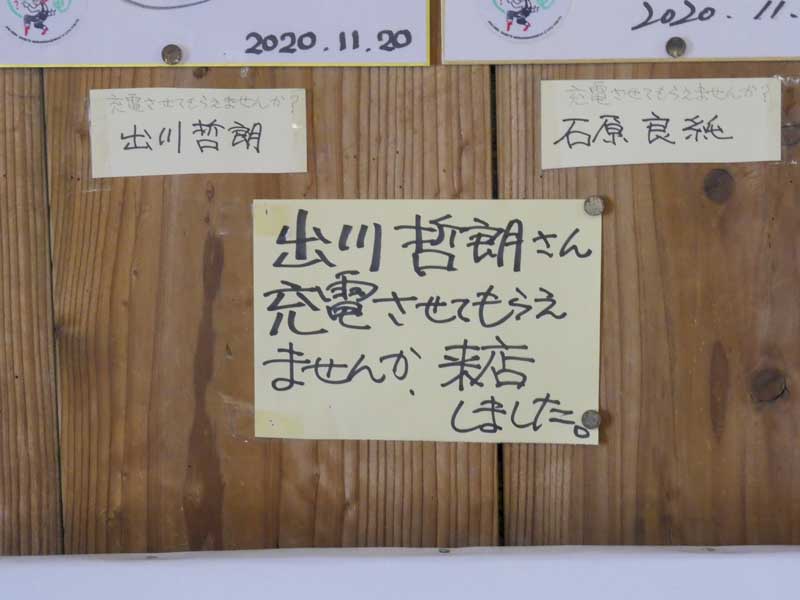 2020.11.20
2020.11.
充電させてもらえませんか?
出川哲朗
充電させてもらえませんか?
石原良純
出川哲朗さん
充電させてもらえ
ませんか、来店
しました。